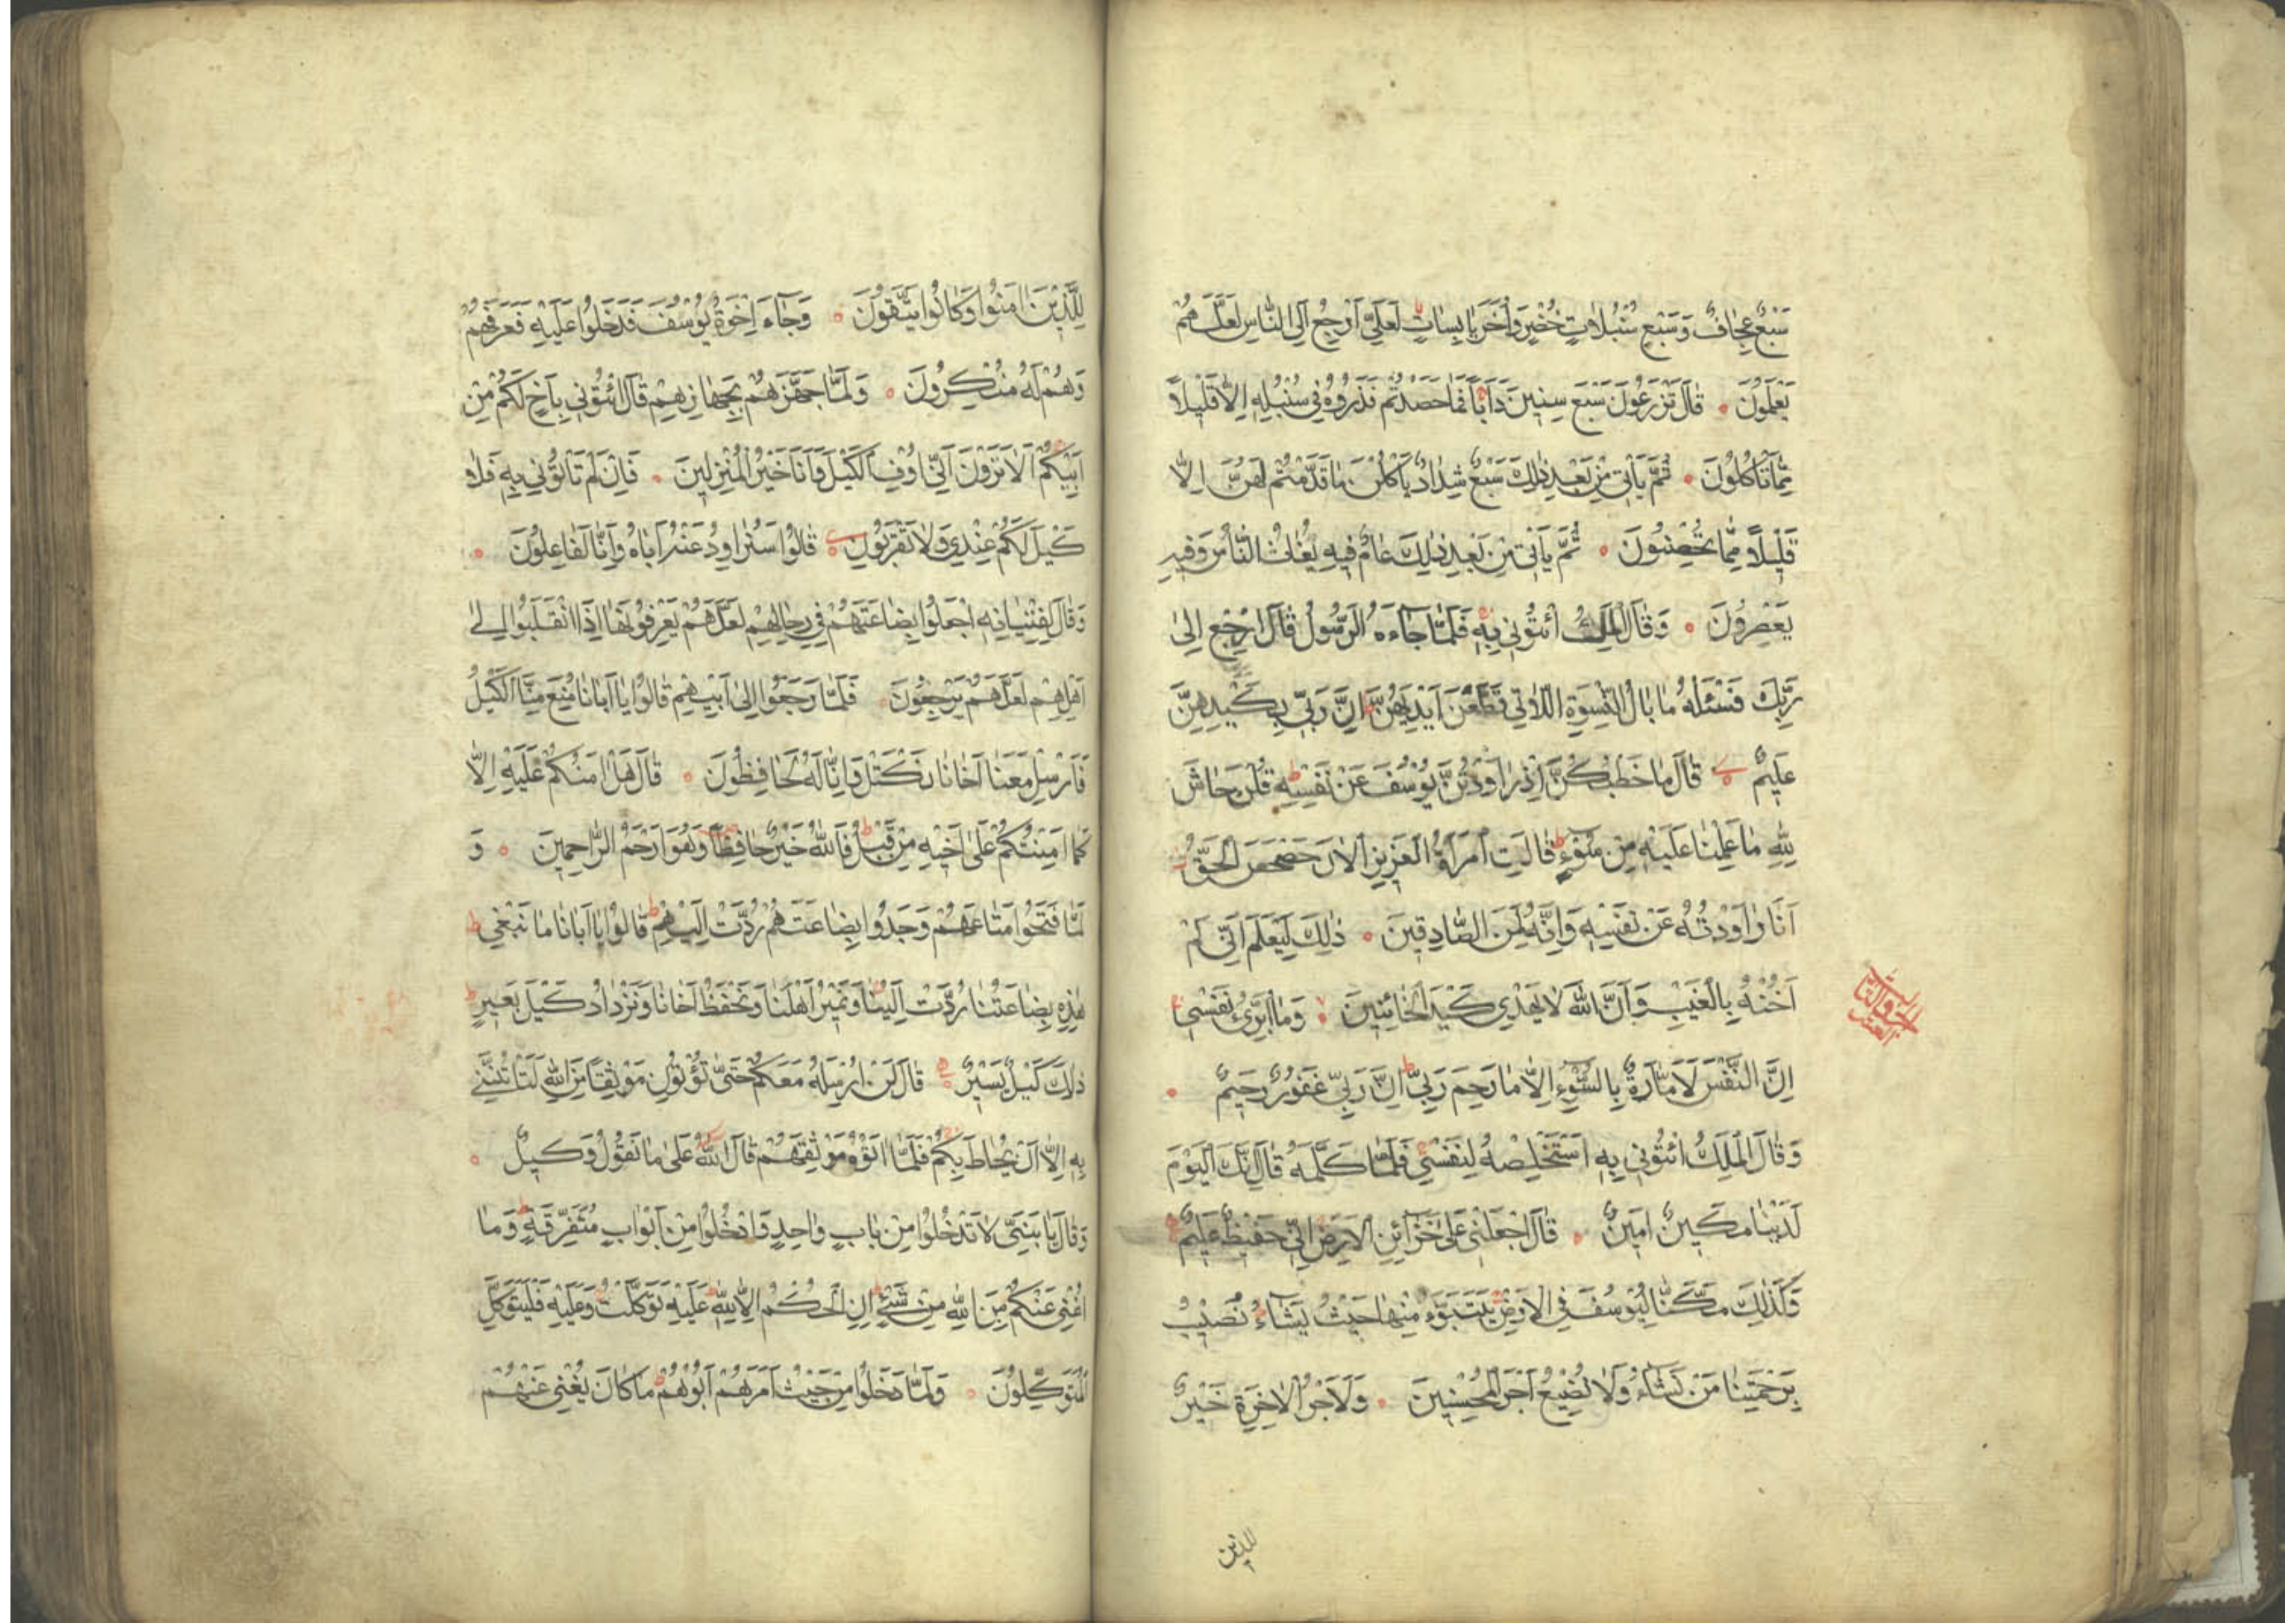 سَبْعٌ عِجَافٌ وَسَبْعِ سُنْبُلَاتٍ خُضْرٍ وَأُخَرَ يَابِسَاتٍ لَعَلِّي أَرْجِعُ إِلَى النَّاسِ لَعَلَّهُمْ
يَعْلَمُونَ ۝ قَالَ تَزْرَعُونَ سَبْعَ سِنِينَ دَأَبًا فَمَا حَصَدْتُمْ فَذَرُوهُ فِي سُنْبُلِهِ إِلَّا قَلِيلًا
مِمَّا تَأْكُلُونَ ۝ ثُمَّ يَأْتِي مِنْ بَعْدِ ذَلِكَ سَبْعٌ شِدَادٌ يَأْكُلْنَ مَا قَدَّمْتُمْ لَهُنَّ إِلَّا
قَلِيلًا مِمَّا تُحْصِنُونَ ۝ ثُمَّ يَأْتِي مِنْ بَعْدِ ذَلِكَ عَامٌ فِيهِ يُغَاثُ النَّاسُ وَفِيهِ
يَعْصِرُونَ ۝ وَقَالَ الْمَلِكُ ائْتُونِي بِهِ فَلَمَّا جَاءَهُ الرَّسُولُ قَالَ ارْجِعْ إِلَى
رَبِّكَ فَسْئَلْهُ مَا بَالُ النِّسْوَةِ اللَّاتِي قَطَّعْنَ أَيْدِيَهُنَّ إِنَّ رَبِّي بِكَيْدِهِنَّ
عَلِيمٌ ۝ قَالَ مَا خَطْبُكُنَّ إِذْ رَاوَدْتُنَّ يُوسُفَ عَنْ نَفْسِهِ قُلْنَ حَاشَ
لِلَّهِ مَا عَلِمْنَا عَلَيْهِ مِنْ سُوءٍ قَالَتِ امْرَأَةُ الْعَزِيزِ الْآنَ حَصْحَصَ الْحَقُّ
أَنَا رَاوَدْتُهُ عَنْ نَفْسِهِ وَإِنَّهُ لَمِنَ الصَّادِقِينَ ۝ ذَلِكَ لِيَعْلَمَ أَنِّي لَمْ
أَخُنْهُ بِالْغَيْبِ وَأَنَّ اللَّهَ لَا يَهْدِي كَيْدَ الْخَائِنِينَ ۝ وَمَا أُبَرِّئُ نَفْسِي
إِنَّ النَّفْسَ لَأَمَّارَةٌ بِالسُّوءِ إِلَّا مَا رَحِمَ رَبِّي إِنَّ رَبِّي غَفُورٌ رَحِيمٌ ۝
وَقَالَ الْمَلِكُ ائْتُونِي بِهِ أَسْتَخْلِصْهُ لِنَفْسِي فَلَمَّا كَلَّمَهُ قَالَ إِنَّكَ الْيَوْمَ
لَدَيْنَا مَكِينٌ أَمِينٌ ۝ قَالَ اجْعَلْنِي عَلَى خَزَائِنِ الْأَرْضِ إِنِّي حَفِيظٌ عَلِيمٌ
وَكَذَلِكَ مَكَّنَّا لِيُوسُفَ فِي الْأَرْضِ يَتَبَوَّءُ مِنْهَا حَيْثُ يَشَاءُ نُصِيبُ
بِرَحْمَتِنَا مَنْ نَشَاءُ وَلَا نُضِيعُ أَجْرَ الْمُحْسِنِينَ ۝ وَلَأَجْرُ الْآخِرَةِ خَيْرٌ
للذين
لِلَّذِينَ آمَنُوا وَكَانُوا يَتَّقُونَ ۝ وَجَاءَ إِخْوَةُ يُوسُفَ فَدَخَلُوا عَلَيْهِ فَعَرَفَهُمْ
وَهُمْ لَهُ مُنْكِرُونَ ۝ وَلَمَّا جَهَّزَهُمْ بِجَهَازِهِمْ قَالَ ائْتُونِي بِأَخٍ لَكُمْ مِنْ
أَبِيكُمْ أَلَا تَرَوْنَ أَنِّي أُوفِي الْكَيْلَ وَأَنَا خَيْرُ الْمُنْزِلِينَ ۝ فَإِنْ لَمْ تَأْتُونِي بِهِ فَلَا
كَيْلَ لَكُمْ عِنْدِي وَلَا تَقْرَبُونِ ۝ قَالُوا سَنُرَاوِدُ عَنْهُ أَبَاهُ وَإِنَّا لَفَاعِلُونَ ۝
وَقَالَ لِفِتْيَانِهِ اجْعَلُوا بِضَاعَتَهُمْ فِي رِحَالِهِمْ لَعَلَّهُمْ يَعْرِفُونَهَا إِذَا انْقَلَبُوا إِلَى
أَهْلِهِمْ لَعَلَّهُمْ يَرْجِعُونَ ۝ فَلَمَّا رَجَعُوا إِلَى أَبِيهِمْ قَالُوا يَا أَبَانَا مُنِعَ مِنَّا الْكَيْلُ
فَأَرْسِلْ مَعَنَا أَخَانَا نَكْتَلْ وَإِنَّا لَهُ لَحَافِظُونَ ۝ قَالَ هَلْ آمَنُكُمْ عَلَيْهِ إِلَّا
كَمَا أَمِنْتُكُمْ عَلَى أَخِيهِ مِنْ قَبْلُ فَاللَّهُ خَيْرٌ حَافِظًا وَهُوَ أَرْحَمُ الرَّاحِمِينَ ۝ وَ
لَمَّا فَتَحُوا مَتَاعَهُمْ وَجَدُوا بِضَاعَتَهُمْ رُدَّتْ إِلَيْهِمْ قَالُوا يَا أَبَانَا مَا نَبْغِي
هَذِهِ بِضَاعَتُنَا رُدَّتْ إِلَيْنَا وَنَمِيرُ أَهْلَنَا وَنَحْفَظُ أَخَانَا وَنَزْدَادُ كَيْلَ بَعِيرٍ
ذَلِكَ كَيْلٌ يَسِيرٌ ۝ قَالَ لَنْ أُرْسِلَهُ مَعَكُمْ حَتَّى تُؤْتُونِ مَوْثِقًا مِنَ اللَّهِ لَتَأْتُنَّنِي
بِهِ إِلَّا أَنْ يُحَاطَ بِكُمْ فَلَمَّا آتَوْهُ مَوْثِقَهُمْ قَالَ اللَّهُ عَلَى مَا نَقُولُ وَكِيلٌ ۝
وَقَالَ يَا بَنِيَّ لَا تَدْخُلُوا مِنْ بَابٍ وَاحِدٍ وَادْخُلُوا مِنْ أَبْوَابٍ مُتَفَرِّقَةٍ وَمَا
أُغْنِي عَنْكُمْ مِنَ اللَّهِ مِنْ شَيْءٍ إِنِ الْحُكْمُ إِلَّا لِلَّهِ عَلَيْهِ تَوَكَّلْتُ وَعَلَيْهِ فَلْيَتَوَكَّلِ
الْمُتَوَكِّلُونَ ۝ وَلَمَّا دَخَلُوا مِنْ حَيْثُ أَمَرَهُمْ أَبُوهُمْ مَا كَانَ يُغْنِي عَنْهُمْ